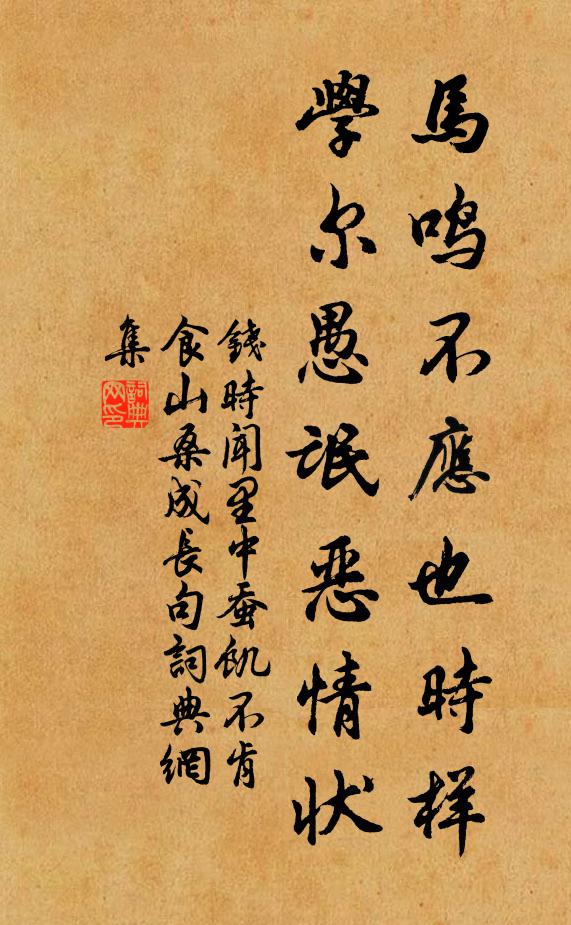 馬鳴不應也時样
學尔愚氓恶情状
錢時聞里中蚕飢不肯
食山桑成長句詞典網
集
詞典
网印